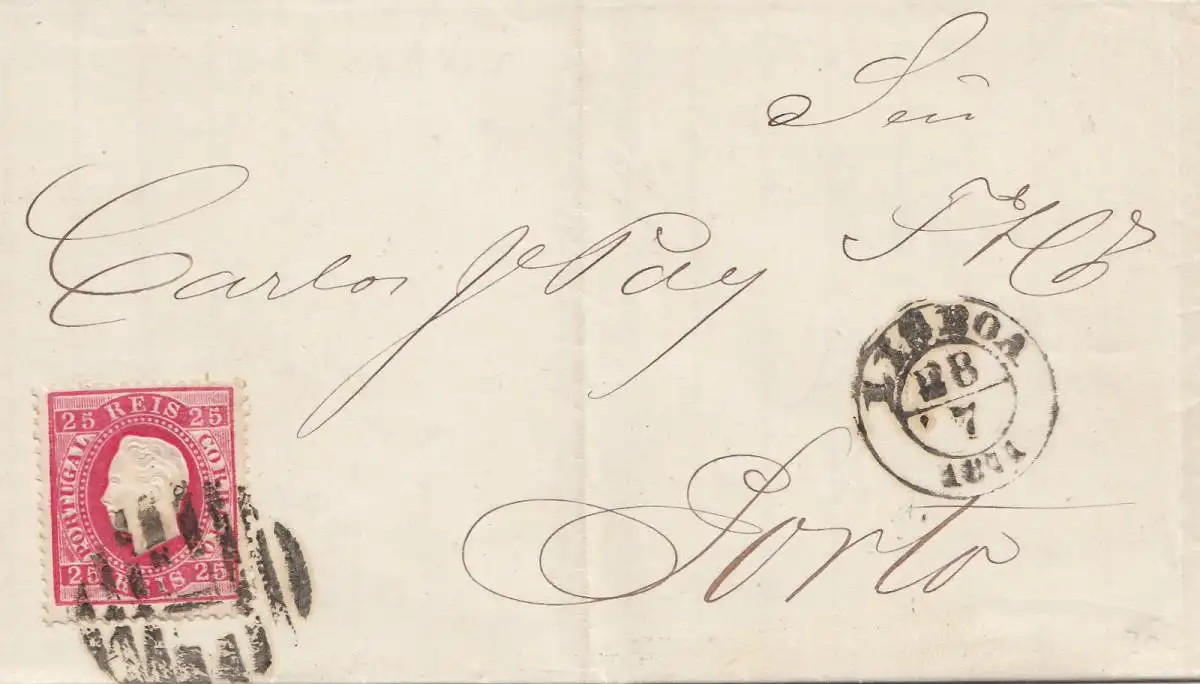 Carlos J Pay
Porto
LISBOA
28
7
1871
25 REIS 25
PORTUGAL
CORREIO
25 REIS 25